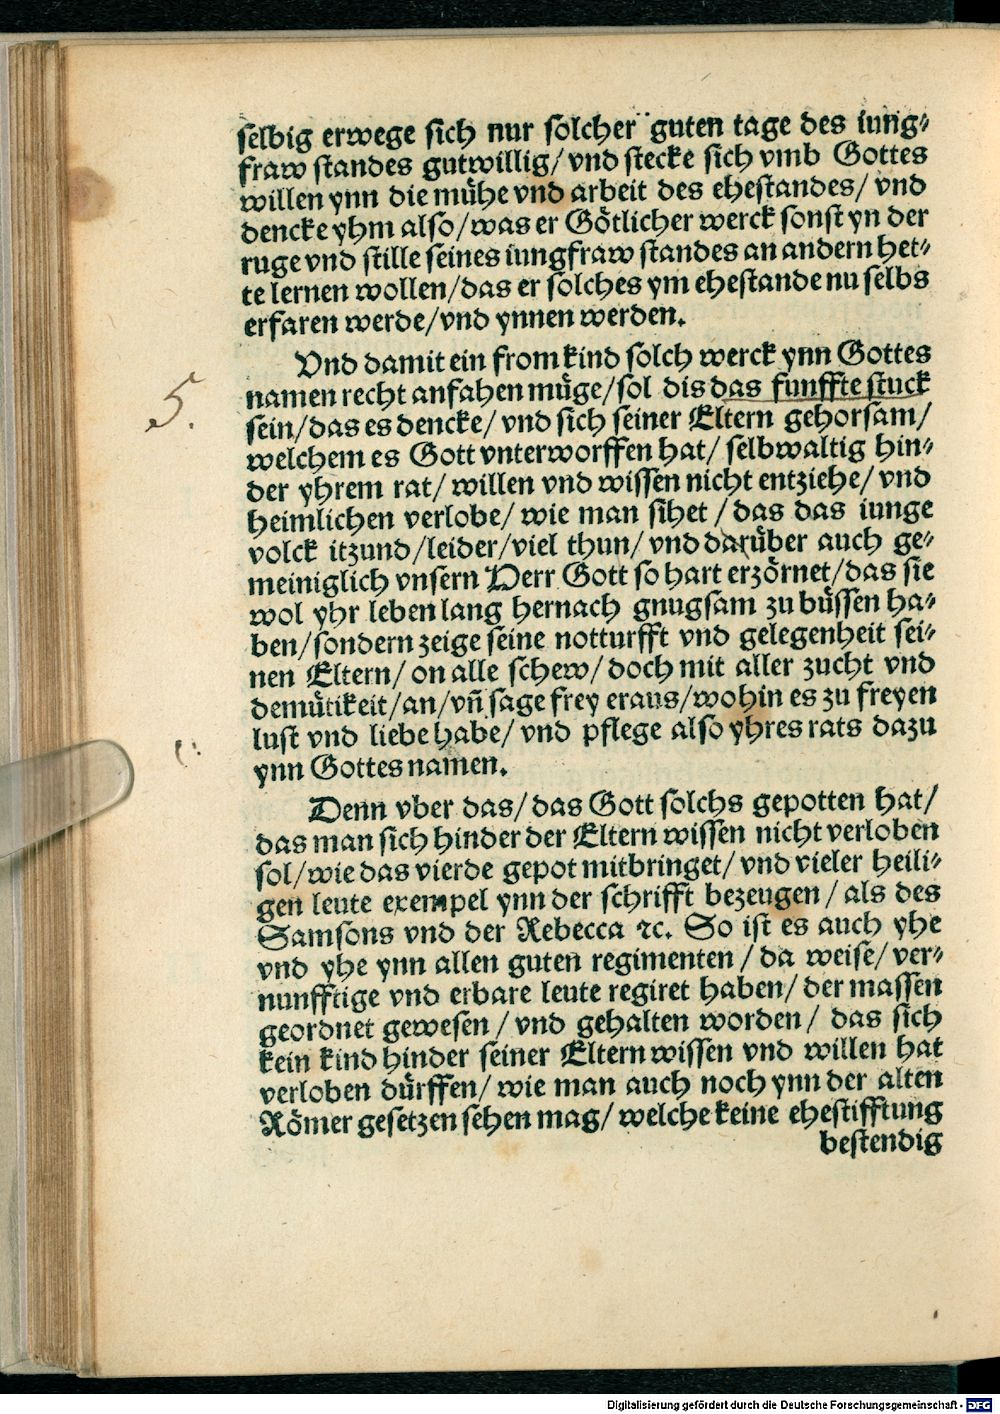 selbig erwege sich nur solcher guten tage des iung⸗
fraw standes gutwillig/ vnd stecke sich vmb Gottes
willen ynn die mühe vnd arbeit des ehestandes/ vnd
dencke yhm also/ was er Götlicher werck sonst yn der
ruge vnd stille seines iungfraw standes an andern het⸗
te lernen wollen/ das er solches ym ehestande nu selbs
erfaren werde/ vnd ynnen werden.
Vnd damit ein from kind solch werck ynn Gottes
namen recht anfahen müge/ sol dis das funffte stuck
5.
sein/ das es dencke/ vnd sich seiner Eltern gehorsam/
welchem es Gott vnterworffen hat/ selbwaltig hin⸗
der yhrem rat/ willen vnd wissen nicht entziehe/ vnd
heimlichen verlobe/ wie man sihet/ das das iunge
volck itzund/ leider/ viel thun/ vnd darüber auch ge⸗
meiniglich vnsern Herr Gott so hart erzörnet/ das sie
wol yhr leben lang hernach gnugsam zu büssen ha⸗
ben/ sondern zeige seine notturfft vnd gelegenheit sei⸗
nen Eltern/ on alle schew/ doch mit aller zucht vnd
demütikeit/ an/ vñ sage frey eraus/ wohin es zu freyen
lust vnd liebe habe/ vnd pflege also yhres rats dazu
ynn Gottes namen.
Denn vber das/ das Gott solchs gepotten hat/
das man sich hinder der Eltern wissen nicht verloben
sol/ wie das vierde gepot mitbringet/ vnd vieler heili⸗
gen leute exempel ynn der schrifft bezeugen/ als des
Samsons vnd der Rebecca ⁊c. So ist es auch yhe
vnd yhe ynn allen guten regimenten/ da weise/ ver⸗
nunfftige vnd erbare leute regiret haben/ der massen
geordnet gewesen/ vnd gehalten worden/ das sich
kein kind hinder seiner Eltern wissen vnd willen hat
verloben dürffen/ wie man auch noch ynn der alten
Römer gesetzen sehen mag/ welche keine ehestifftung
bestendig
Digitalisierung gefördert durch die Deutsche Forschungsgemeinschaft - DFG